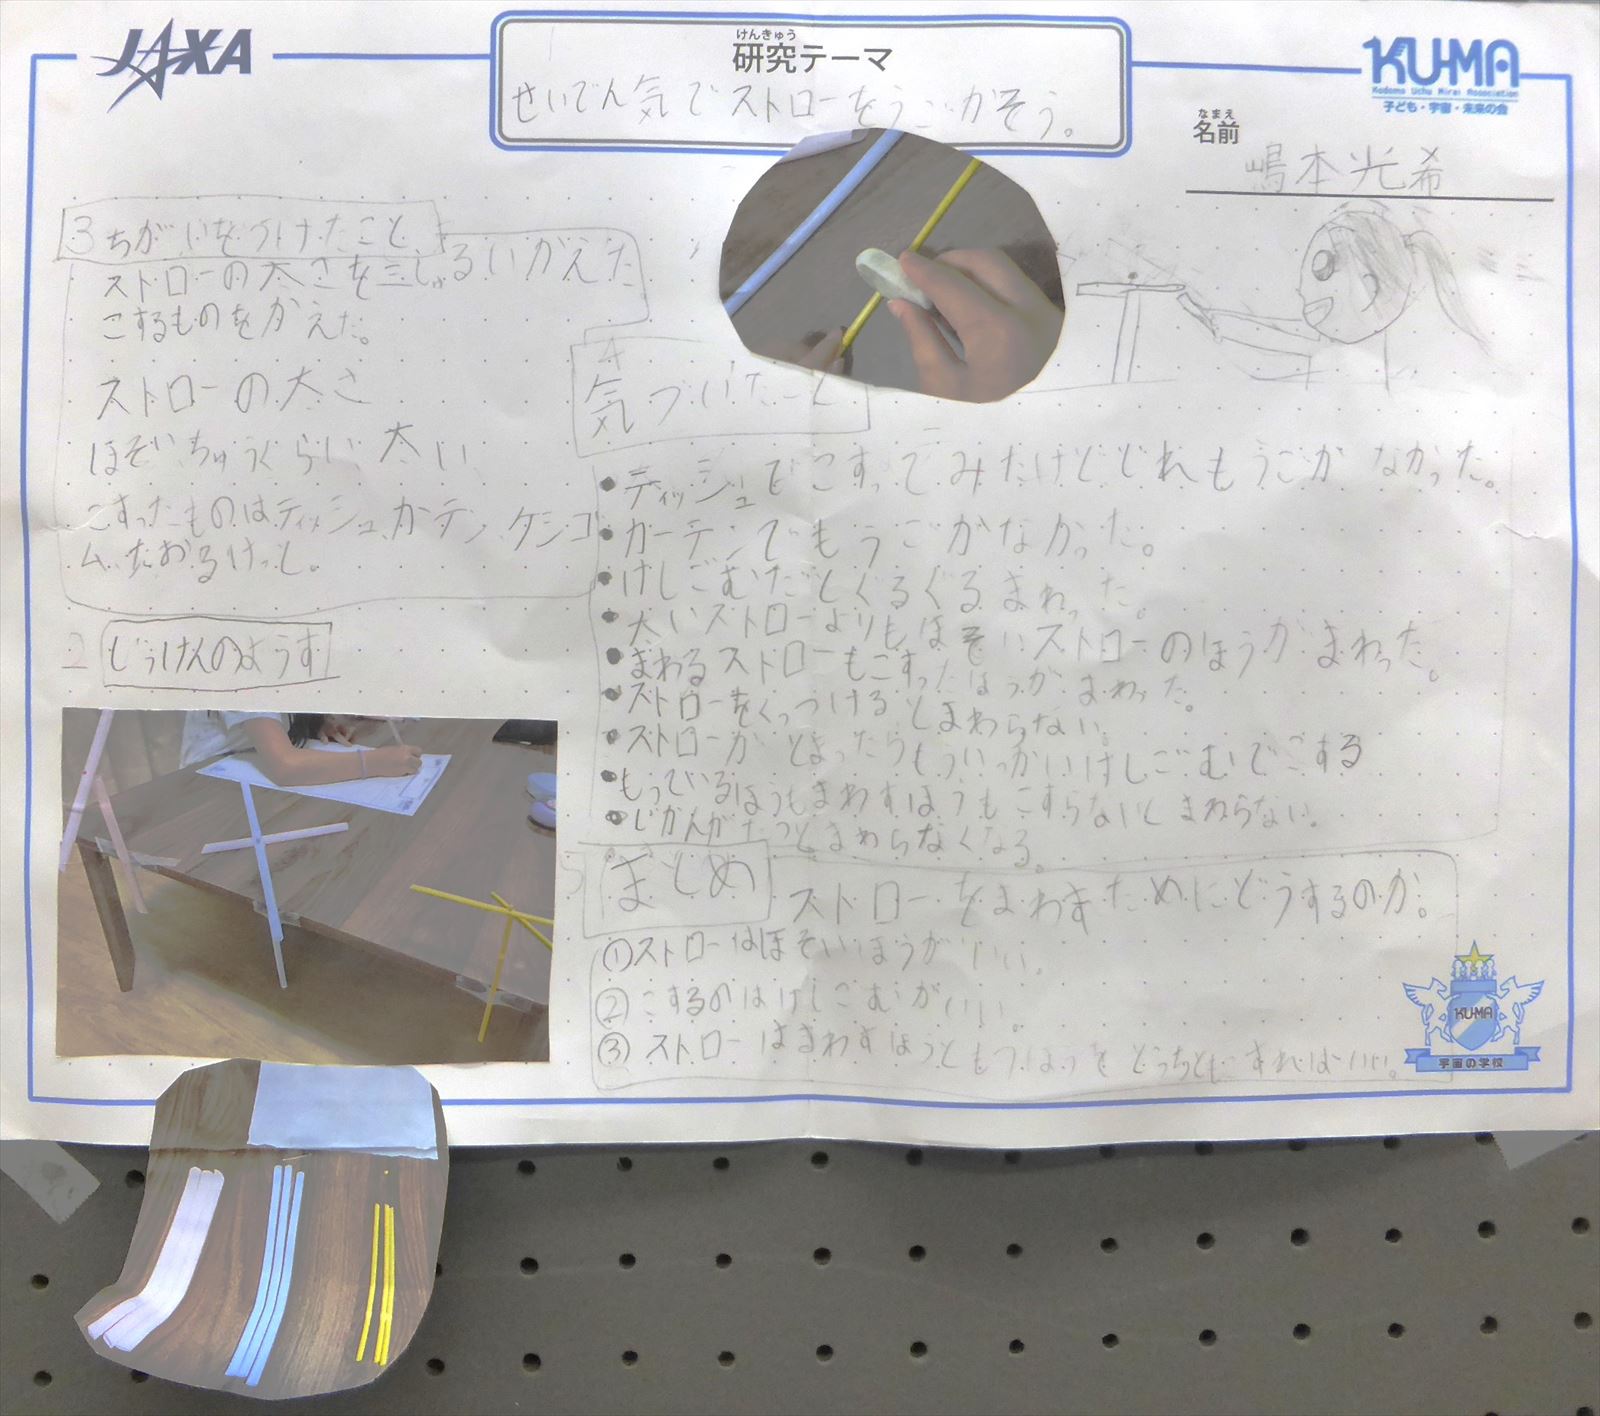 JAXA
けんきゅう
研究テーマ
せいでん気でストローをうごかそう。
KU-MA
Kodomo Uchu Mirai Association
子ども・宇宙・未来の会
なまえ
名前
嶋本光希
3 ちがいをつけたこと
ストローの太さを三しゅるいかえた
こするものをかえた。
ストローの太さ
ほそい、ちゅうくらい、太い
こすったものはティッシュ、カーテン、ケシゴ
ム、たおるけっと。
2 じっけんのようす
4
気づいたこと
・ティッシュでこすってみたけどどれもうごかなかった。
・カーテンでもうごかなかった。
・けしごむだとくるくるまわった。
・太いストローよりもほそいストローのほうがまわった。
・まわるストローもこすったほうがまわった。
・ストローをくっつけるとまわらない。
・ストローがとまったらもういっかいけしごむでこする
・もっているほうもまわすほうもこすらないとまわらない。
・じかんがたつとまわらなくなる。
5 まとめ
ストローをまわすためにどうするのか。
①ストローはほそいほうがいい。
②こするのはけしごむがいい。
③ストローはまわすほうともつほうをどっちともすればいい。
KU-MA
宇宙の学校